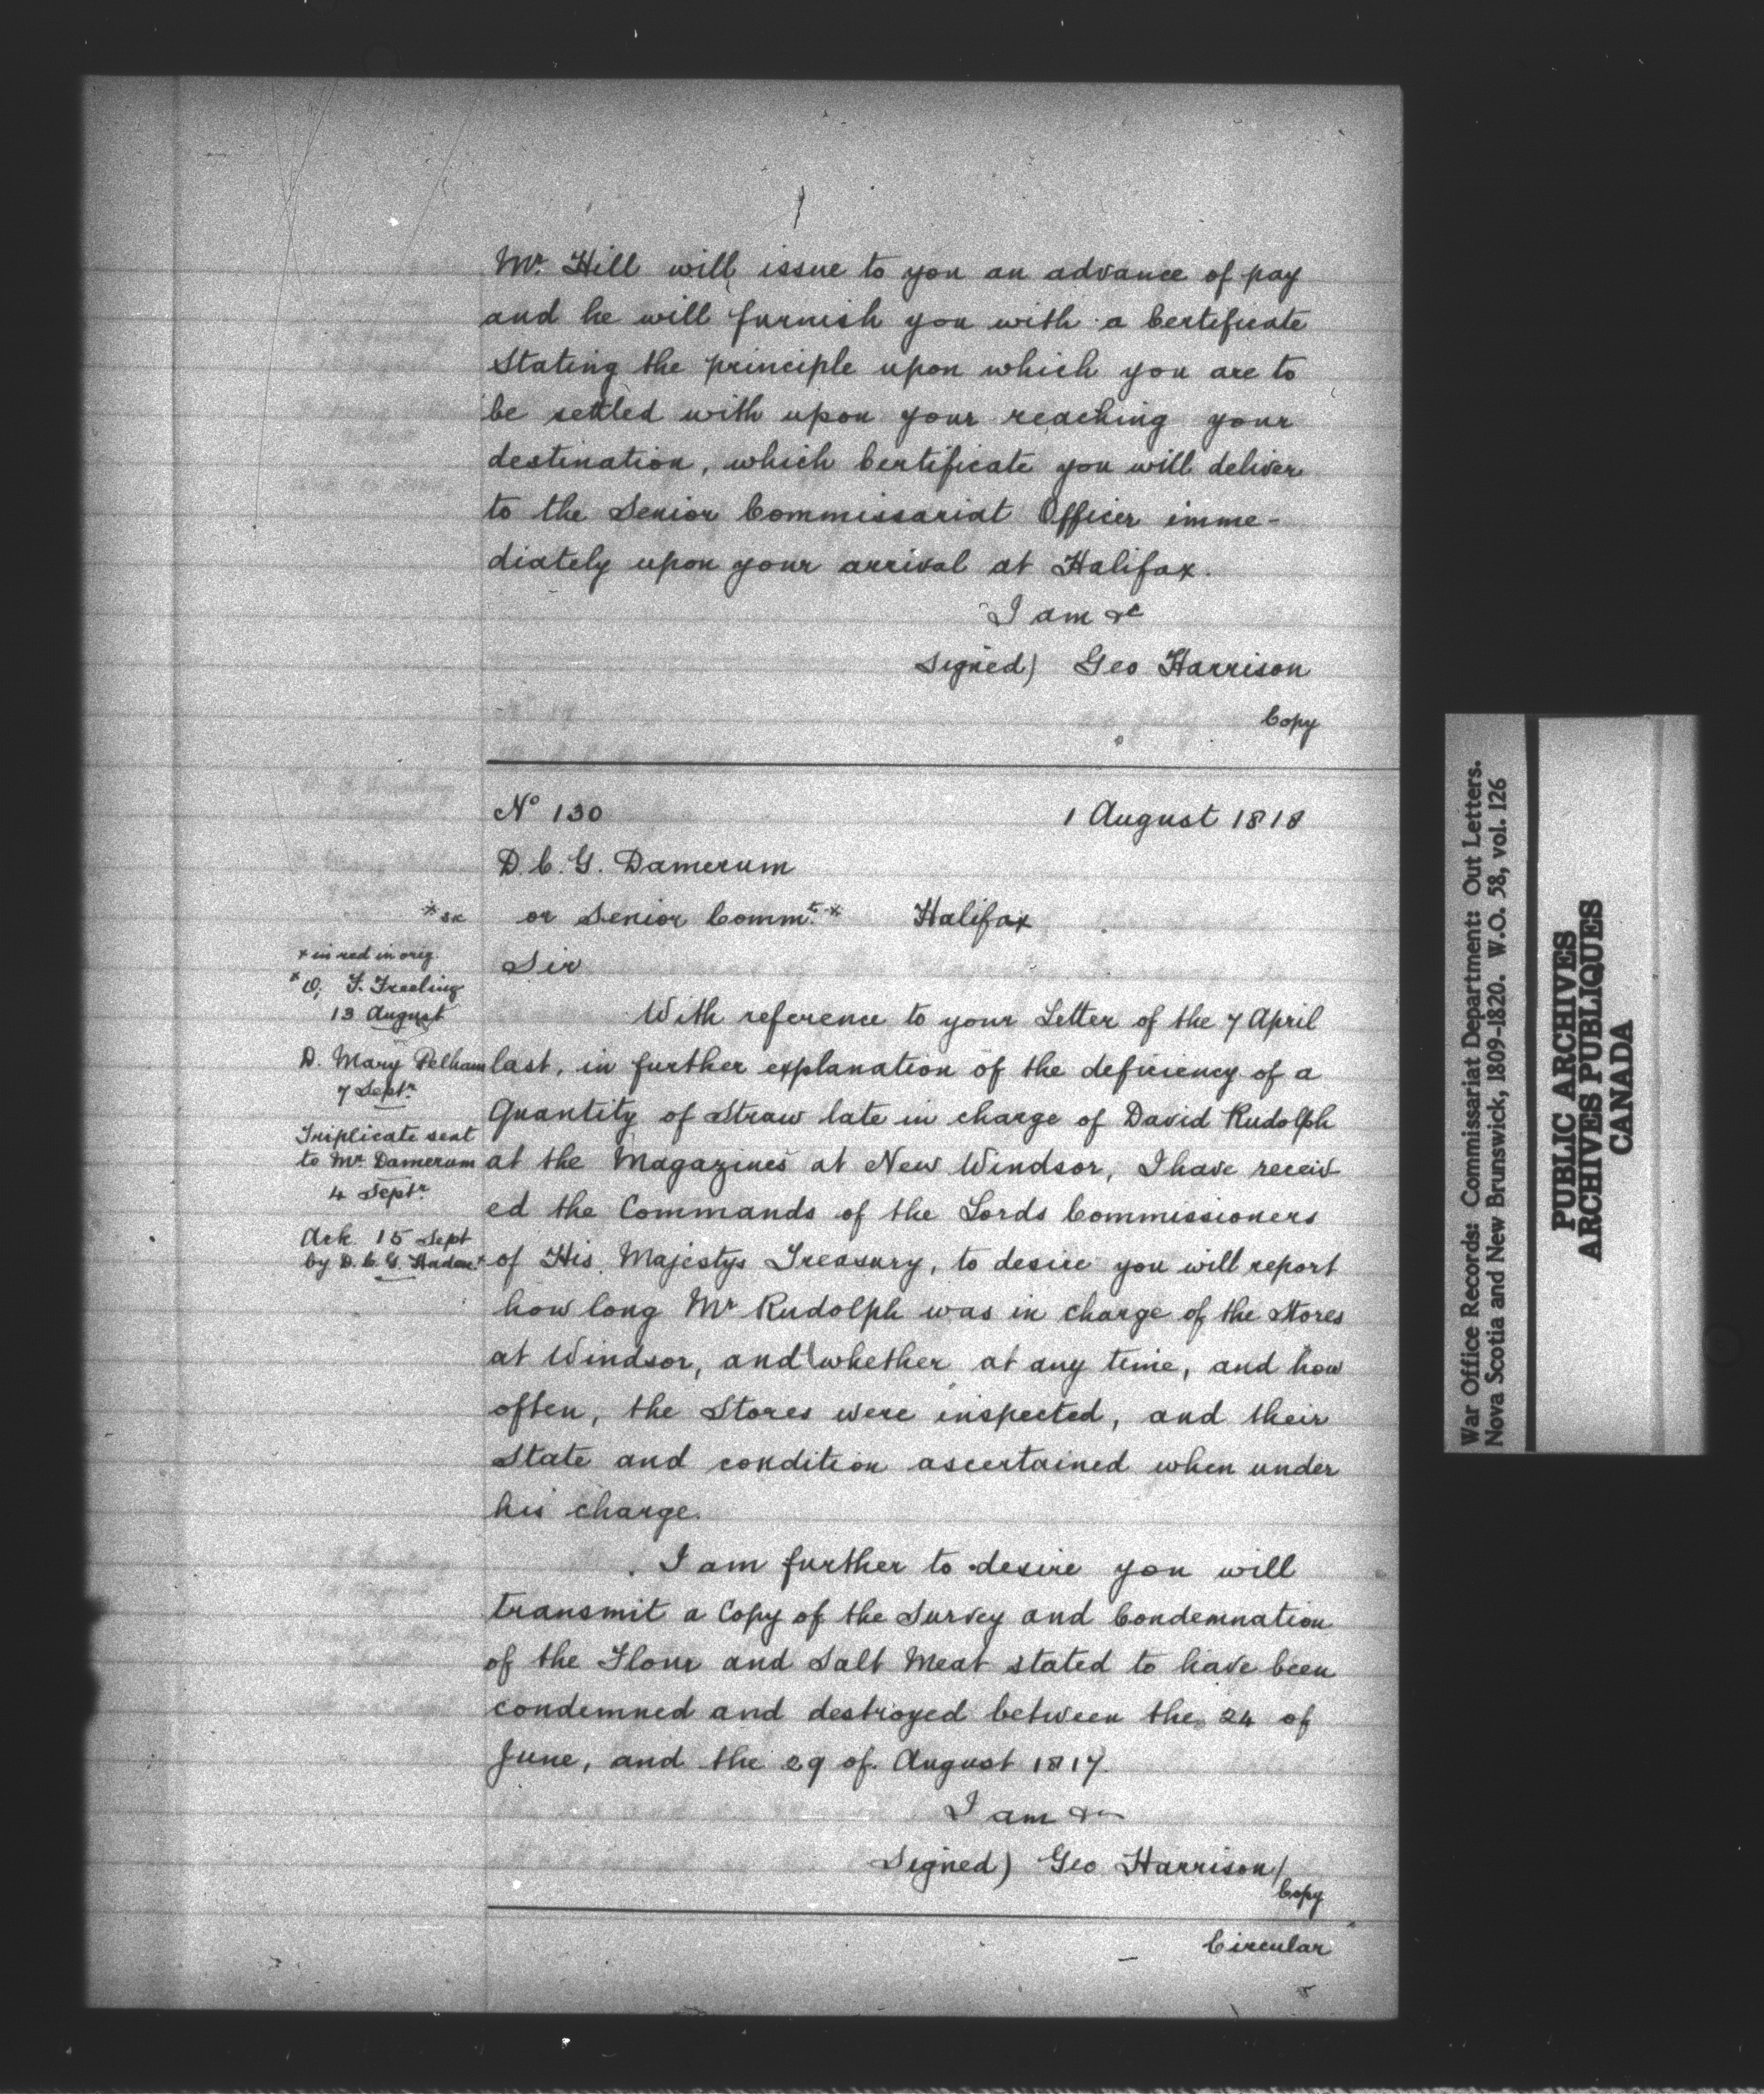 Mr. Hill will issue to you an advance of pay
and he will furnish you with a Certificate
Stating the principle upon which you are to
be settled with upon your reaching your
destination, which Certificate you will deliver
to the Senior Commissariat Officer imme-
diately upon your arrival at Halifax.
I am &c
Signed) Geo Harrison
Copy
No 130 1 August 1818
D. C. G. Damerum
or Senior Commt. * Halifax
Sir
* in red in orig.
* O, F. Freeling
13 August
D. Mary Pelham
7 Septr.
Triplicate sent
to Mr. Damerum
4 Septr.
Ack 15 Sept
by D. C. G.
With reference to your Letter of the 7 April
last, in further explanation of the deficiency of a
Quantity of Straw late in charge of David Rudolph
at the Magazines at New Windsor, I have receiv
ed the Commands of the Lords Commissioners
of His Majestys Treasury, to desire you will report
how long Mr Rudolph was in charge of the Stores
at Windsor, and whether at any time, and how
often, the Stores were inspected, and their
State and condition ascertained when under
his charge.
I am further to desire you will
transmit a Copy of the Survey and Condemnation
of the Flour and Salt Meat stated to have been
condemned and destroyed between the 24 of
June, and the 29 of August 1817.
I am &c
Signed) Geo Harrison/
Copy
Circular
War Office Records: Commissariat Department: Out Letters.
Nova Scotia and New Brunswick, 1809-1820. W.O. 58, vol. 126
PUBLIC ARCHIVES
ARCHIVES PUBLIQUES
CANADA